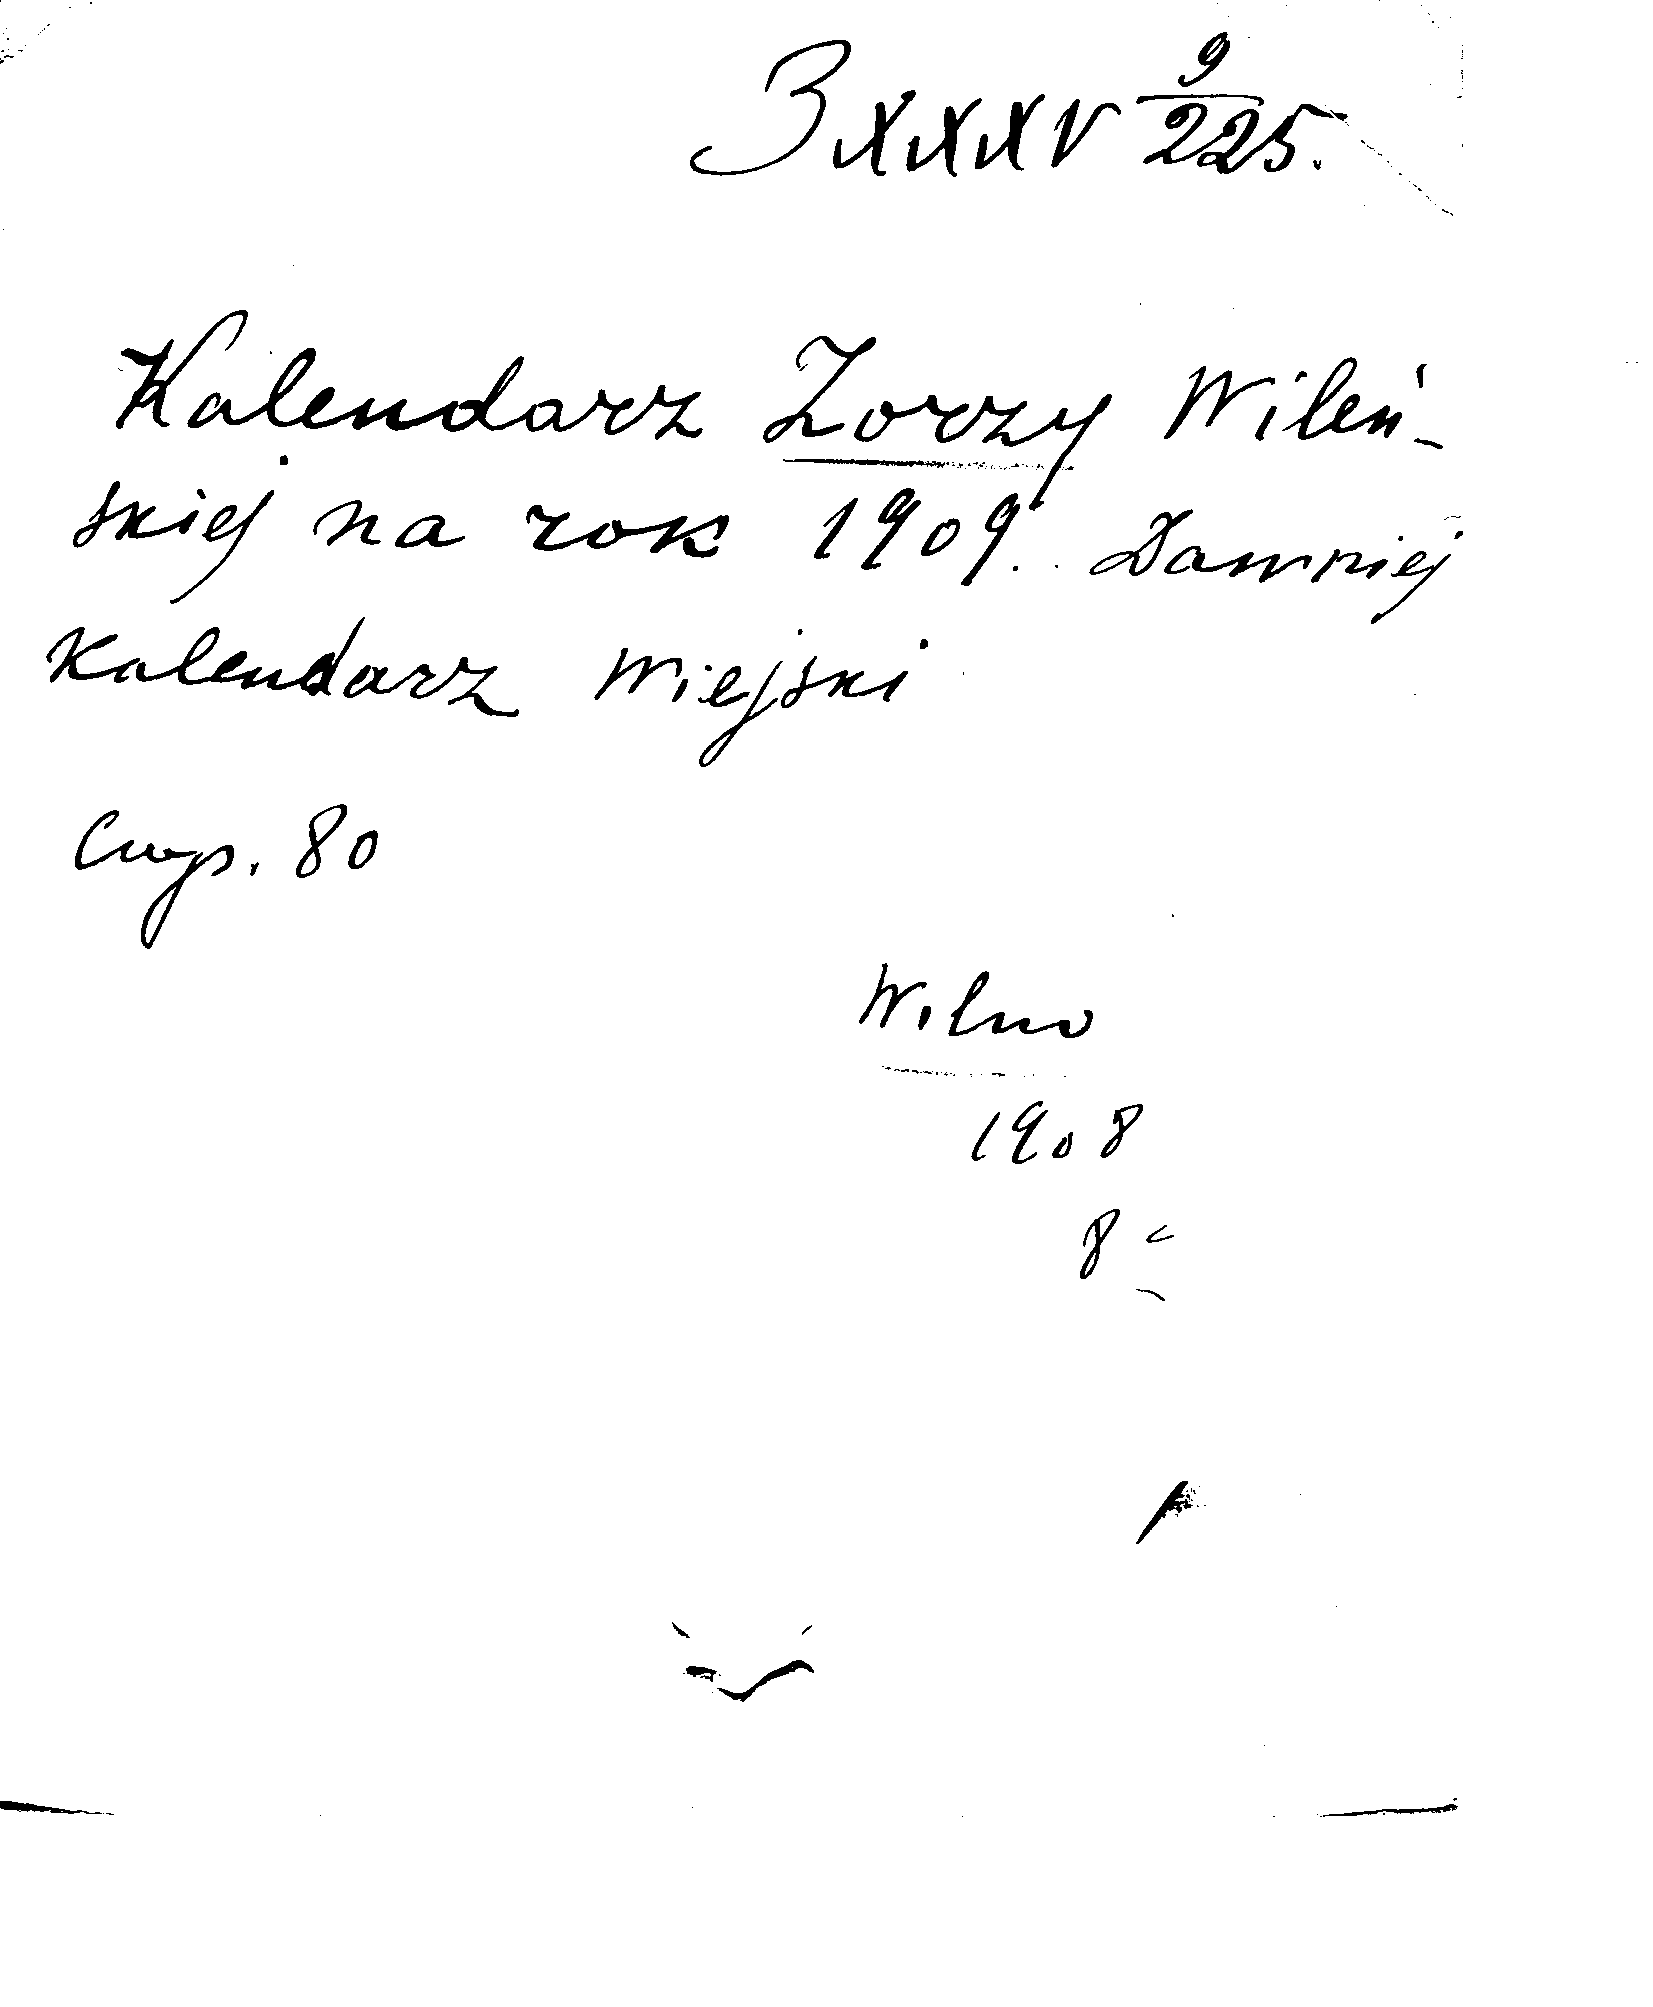 3 XXXV 9/225.
Kalendarz Zorzy Wileń-
skiej na rok 1909. Dawniej
Kalendarz Wiejski
Стр. 80
Wilno
1908
8